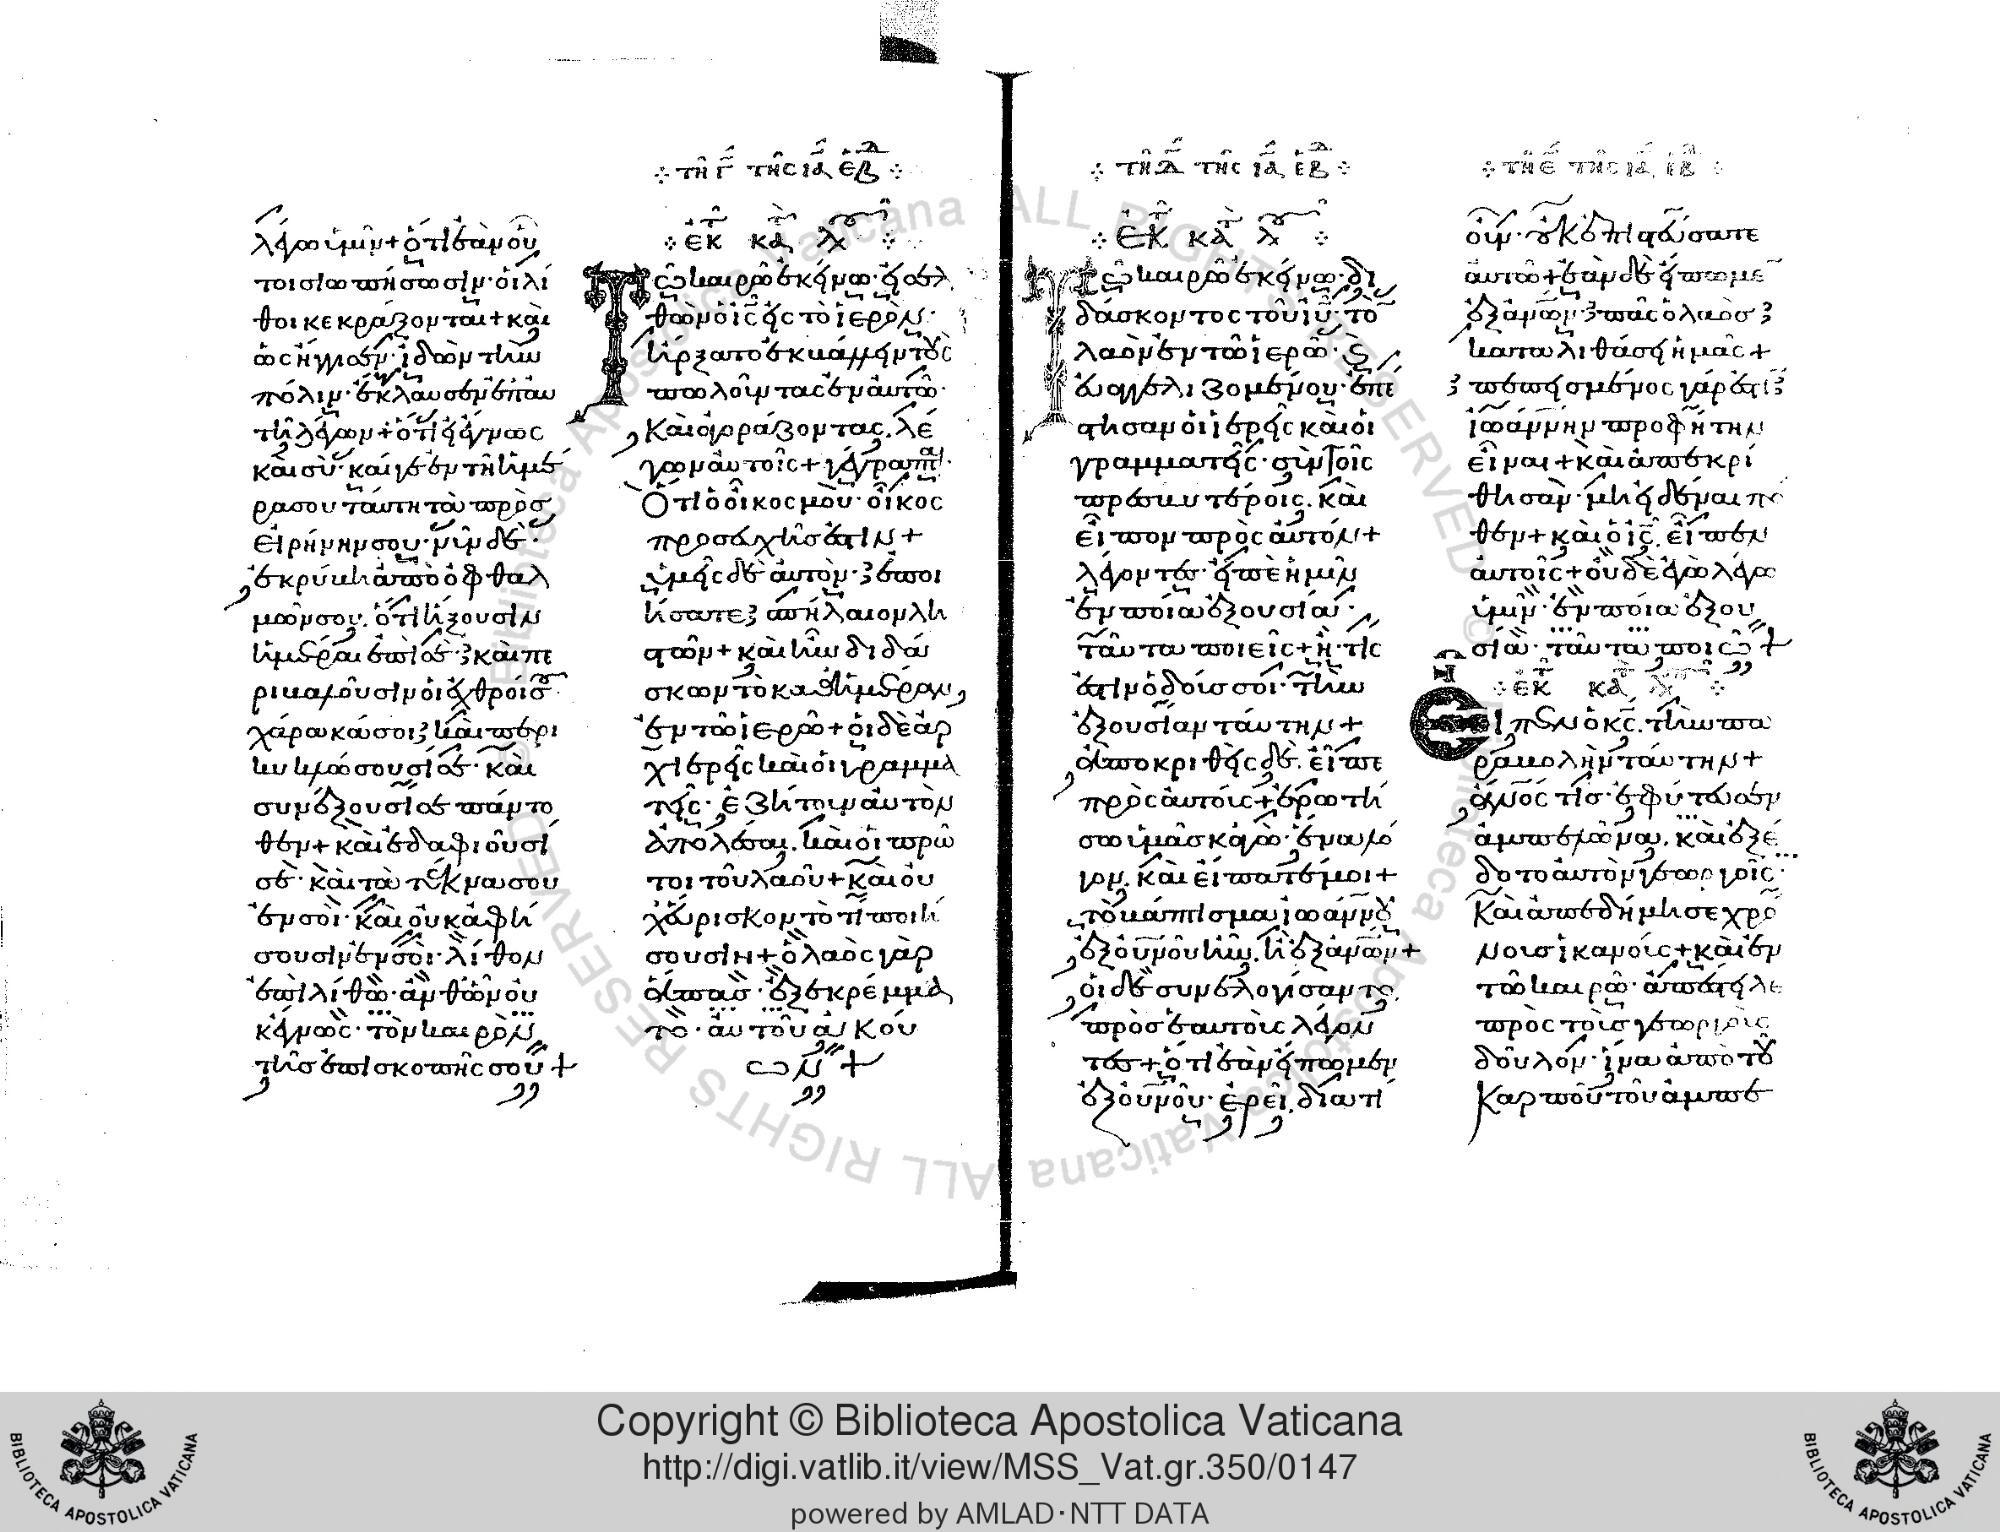 λέγω ὑμῖν + ὅτι ἐὰν οὗ
τοι σιωπήσωσιν · οἱ λί
θοι κεκράξονται + καὶ
ὡς ἤγγισεν · ἰδὼν τὴν
πόλιν · ἔκλαυσεν ἐπ' αὐ
τῇ λέγων + ὅτι εἰ ἔγνως
καὶ σὺ · καί γε ἐν τῇ ἡμέ
ρα σου ταύτη τὰ πρὸς
εἰρήνην σου · νῦν δὲ ·
ἐκρύβη ἀπὸ ὀφθαλ
μῶν σου . ὅτι ἥξουσιν
ἡμέραι ἐπὶ σὲ · καὶ πε
ριβαλοῦσιν οἱ ἐχθροί σου
χάρακά σοι καὶ περι
κυκλώσουσί σε · καὶ
συνέξουσί σε πάντο
θεν + καὶ ἐδαφιοῦσί
σε · καὶ τὰ τέκνα σου
ἐν σοὶ · καὶ οὐκ ἀφή
σουσιν ἐν σοὶ · λίθον
ἐπὶ λίθω · ἀνθ' ὧν οὐκ
ἔγνως · τὸν καιρὸν
τῆς ἐπισκοπῆς σου +
τῇ Γ τῆς ΙΑ ἑβδ
ἐκ τ κατὰ λουκ
Τῶ καιρῶ ἐκείνω · εἰσελ
θὼν ὁ ις εἰς τὸ ἱερὸν ·
ἤρξατο ἐκβάλλειν τοὺς
πωλοῦντας ἐν αὐτῶ ·
καὶ ἀγοράζοντας . λέ
γων αὐτοῖς + γέγραπται ·
Ὅτι ὁ οἶκος μου · οἶκος
προσευχῆς ἐστιν +
ὑμεῖς δὲ αὐτὸν · ἐποι
ήσατε σπήλαιον λη
στῶν + καὶ ἦν διδά
σκων τὸ καθ' ἡμέραν
ἐν τῶ ἱερῶ + οἱ δὲ ἀρ
χιερεῖς καὶ οἱ γραμμα
τεῖς · ἐζήτουν αὐτὸν
ἀπολέσαι . καὶ οἱ πρῶ
τοι τοῦ λαοῦ + καὶ οὐ
χ' εὕρισκον τὸ τί ποιή
σουσιν + ὁ λαὸς γὰρ
ἅπας · ἐξεκρέμμα
το · αὐτοῦ ἀκού
ων +
τῇ Δ τῆς ΙΑ ἑβδ
ἐκ τ κατὰ λουκ
Τῶ καιρῶ ἐκείνω · δι
δάσκοντος τοῦ ιυ · τὸν
λαὸν ἐν τῶ ἱερῶ · καὶ
εὐαγγελιζομένου · ἐπέ
στησαν οἱ ἱερεῖς καὶ οἱ
γραμματεῖς · σὺν τοῖς
πρεσβυτέροις . καὶ
εἶπον πρὸς αὐτόν +
λέγοντες · εἰπὲ ἡμῖν
ἐν ποία ἐξουσία ·
ταῦτα ποιεῖς + ἢ · τίς
ἐστιν ὁ δούς σοι · τὴν
ἐξουσίαν ταύτην +
ἀποκριθεὶς δὲ . εἶπε
πρὸς αὐτούς + ἐρωτή
σω ὑμᾶς κἀγὼ · ἕνα λό
γον . καὶ εἴπατέ μοι +
τὸ βάπτισμα ἰωάννου
ἐξ οὐνοῦ ἦν . ἢ ἐξ ἀνων +
οἱ δὲ συνελογίσαντο
πρὸς ἑαυτοὺς λέγον
τες + ὅτι ἐὰν εἴπωμεν
ἐξ οὐνοῦ · ἐρεῖ . διατί
τῇ Ε τῆς ΙΑ ἑβδ
οὖν · οὐκ ἐπιστεύσατε
αὐτῶ + ἐὰν δὲ εἴπωμεν
ἐξ ἀνων · πᾶς ὁ λαὸς
καταλιθάσει ἡμᾶς +
πεπεισμένος γάρ ἐστιν
ἰωάννην προφήτην
εἶναι + καὶ ἀπεκρί
θησαν · μὴ εἰδέναι πό
θεν + καὶ ὁ ις . εἶπεν
αὐτοῖς + οὐδὲ ἐγὼ λέγω
ὑμῖν · ἐν ποία ἐξου
σία · ταῦτα ποιῶ +
ἐκ τ κατὰ λουκ
Εἶπεν ὁ κς . τὴν πα
ραβολὴν ταύτην +
ἀνος τὶς · ἐφύτευσεν
ἀμπελῶνα . καὶ ἐξέ
δοτο αὐτὸν γεωργοῖς ·
καὶ ἀπεδήμησε χρό
νους ἱκανούς + καὶ ἐν
τῶ καιρῶ · ἀπέστειλε
πρὸς τοὺς γεωργοὺς
δοῦλον · ἵνα ἀπὸ τοῦ
καρποῦ τοῦ ἀμπε
Copyright © Biblioteca Apostolica Vaticana
http://digi.vatlib.it/view/MSS_Vat.gr.350/0147
powered by AMLAD·NTT DATA
BIBLIOTECA APOSTOLICA VATICANA
BIBLIOTECA APOSTOLICA VATICANA